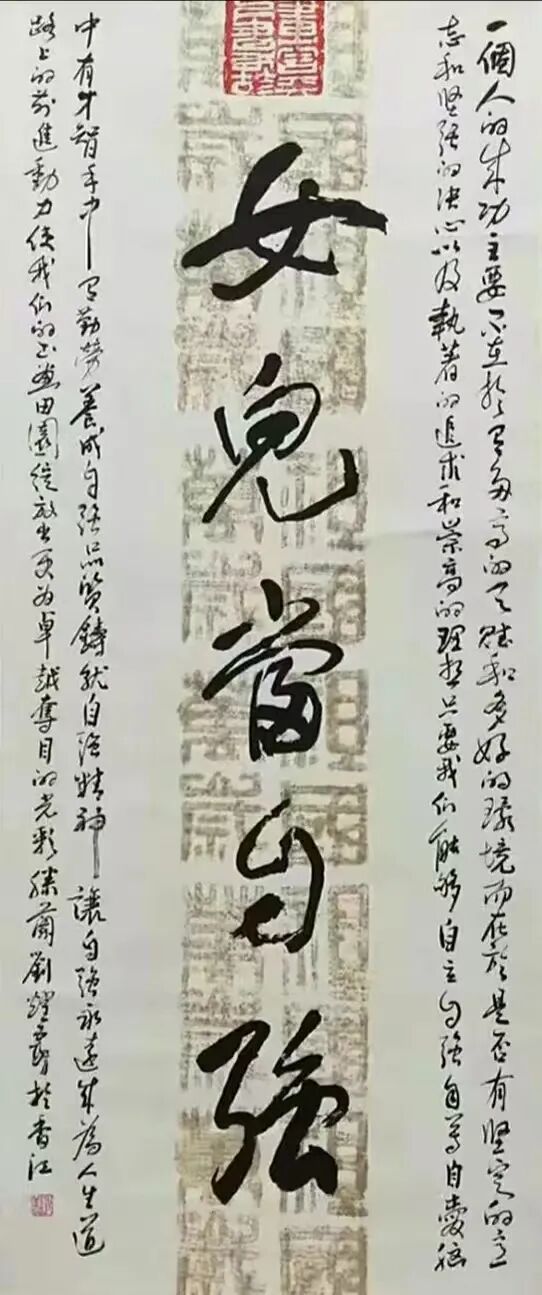 一個人的成功主要不在於有多高的天賦和多好的環境而在於是否有堅定的意
志和堅强的决心以及執着的追求和崇高的理想只要我们能够自立自强自尊自愛腦
女兒當自强
中有才智手中有勤勞養成自强品質鑄就自强精神讓自强永遠成為人生道
路上的前進動力使我们的书画田園綻放出更为卓越奪目的光彩 蘭劉耀於香江